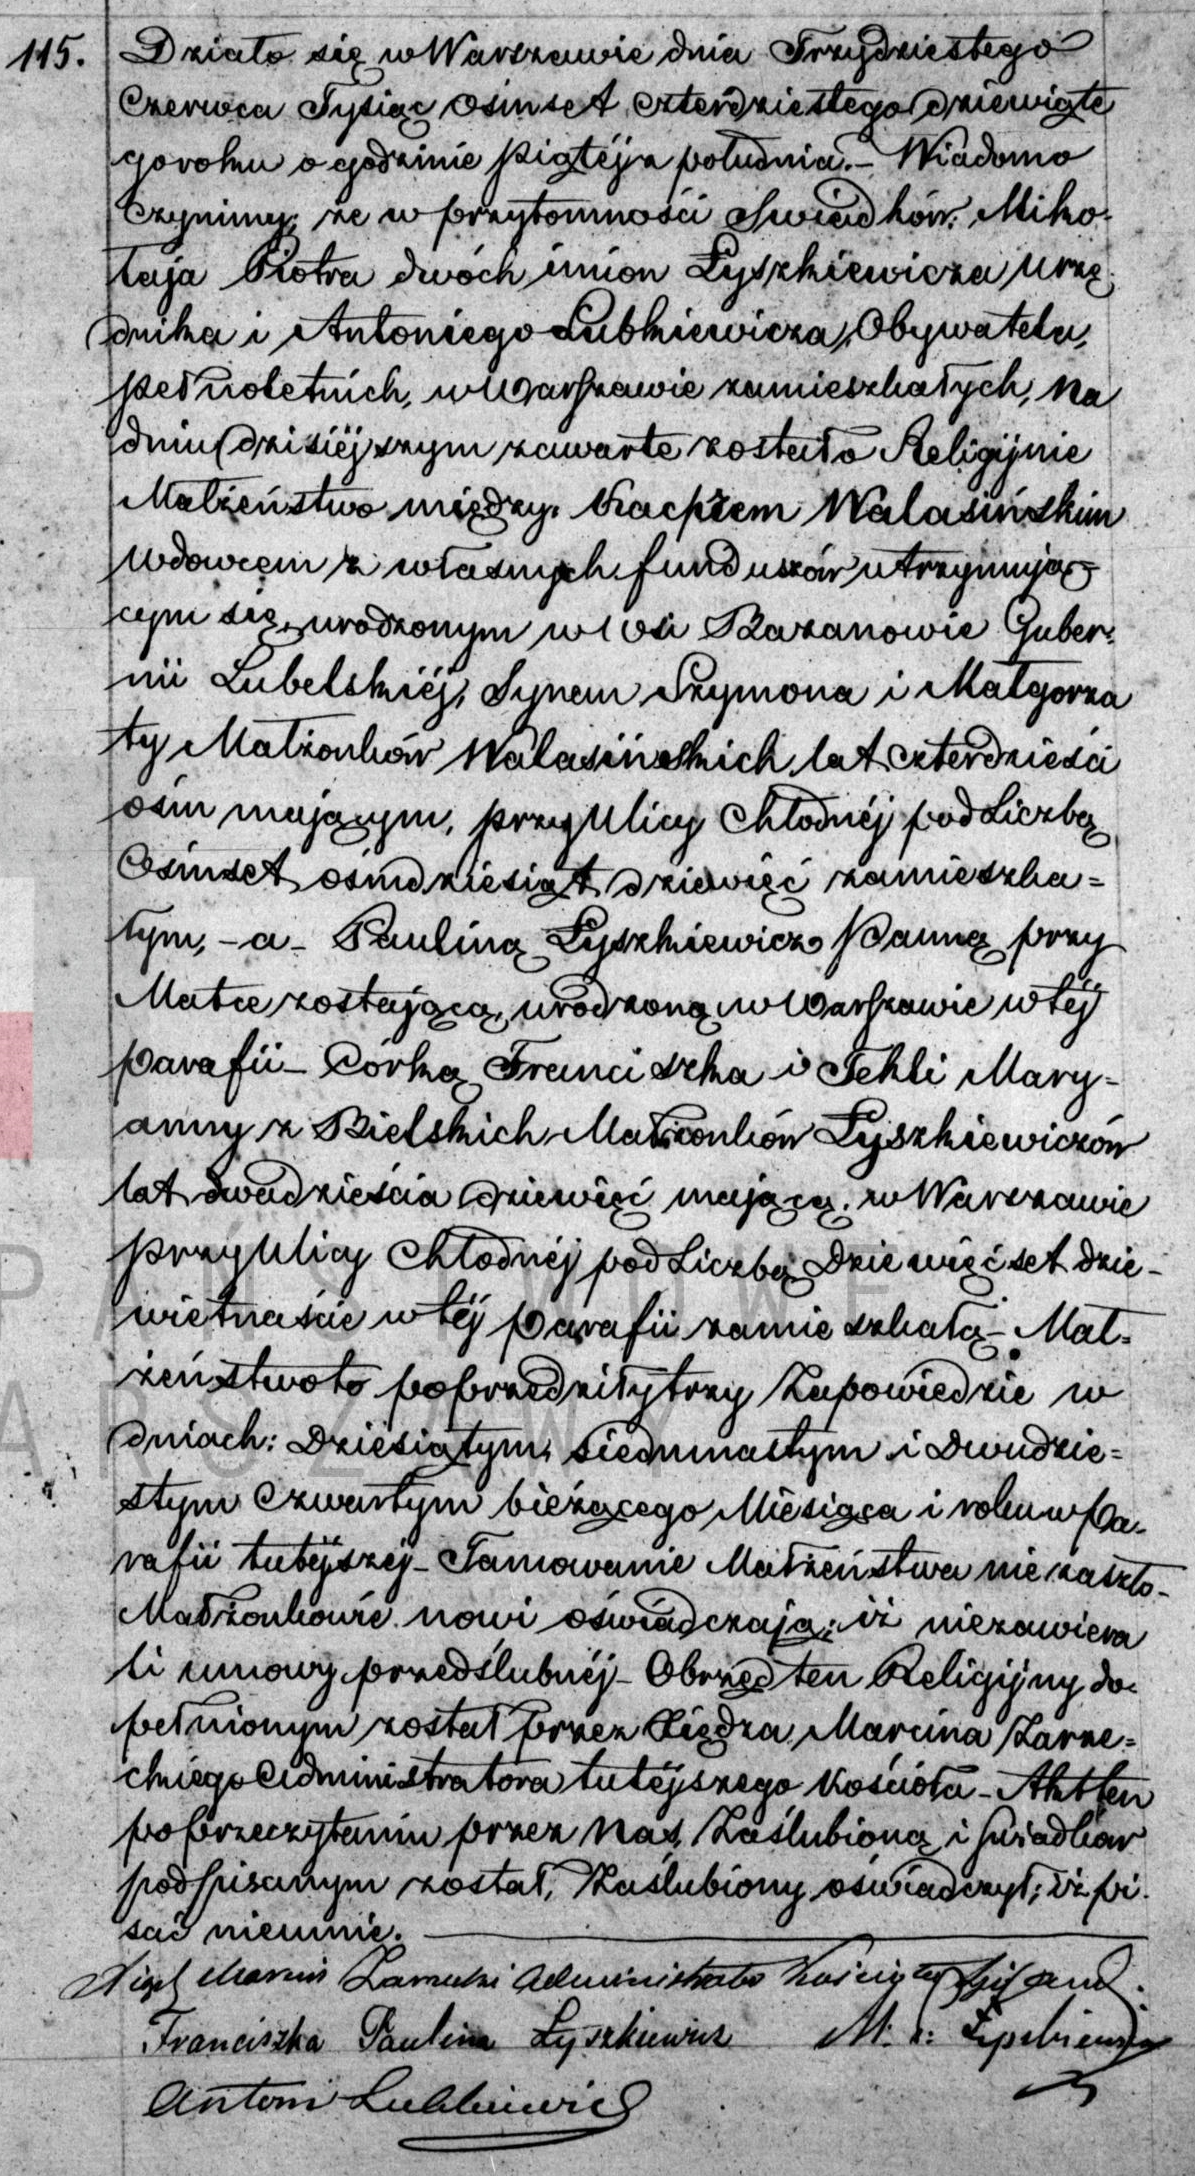 115. Działo się w Warszawie dnia Trzydziestego
Czerwca Tysiąc Ośmset czterdziestego dziewięte
go roku o godzinie piątéj z południa. – Wiadomo
czynimy, że w przytomności Swiadków: Miko-
łaja Piotra dwóch imion Łyszkiewicza urzę-
dnika i Antoniego Lubkiewicza, Obywatela,
pełnoletnich, w Warszawie zamieszkałych, na
dniu dzisiéjszym zawarte zostało Religijnie
Małżeństwo między. Kacprem Walasińskim
wdowcem z własnych funduszów utrzymują-
cym się, urodzonym w Wsi Bazanowie Guber-
nii Lubelskiéj, Synem Szymona i Małgorza
ty Małżonków Walasińskich lat czterdzieści
ośm mającym, przy Ulicy Chłodnéj pod Liczbą
Ośmset ośmdziesiąt dziewięć zamieszka=
łym, – a – Pauliną Łyszkiewicz Panną przy
Matce zostającą, urodzoną w Warszawie w téj
parafii – Córką Franciszka i Tekli Mary-
anny z Bielskich Małżonków Łyszkiewiczów
lat dwadzieścia dziewięć mającą, w Warszawie
przy Ulicy Chłodnéj pod Liczbą Dziewięćset dzie-
wietnaście w téj parafii zamieszkałą – Mał=
żeństwo to poprzedziły trzy Zapowiedzie w
dniach: Dziesiątym, siedmnastym i Dwudzie=
stym Czwartym bieżącego Miesiąca i roku w Pa-
rafii tutéjszéj – Tamowanie Małżeństwa nie zaszło –
Małżonkowie nowi oświadczają; iż niezawiera
li umowy przedślubnéj – Obrzęd ten Religijny do-
pełnionym został przez Xiędza Marcina Zarze=
ckiego Administratora tutéjszego Kościoła – Akt ten
po przeczytaniu przez Nas, Zaślubioną i Swiadków
podpisanym został, Zaślubiony oświadczył; iż pi-
sać nieumie.
Xiądz Marcin Zarzecki Administrator Kościoła
Franciszka Paulina Łyszkiewicz M. P: Łyszkiewicz
Antoni Lubkiewicz
PAŃSTWOWE
WARSZAWY